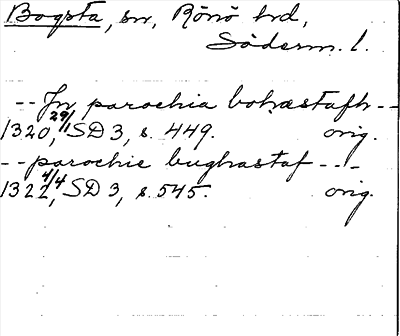 Bogsta, sn, Rönö hd,
Söderm. l.
-- In parochia bohæstafh --
1320 29/1, SD 3, s. 449. orig.
-- parochie bughastaf ---
1322 4/4, SD 3, s. 545. orig.